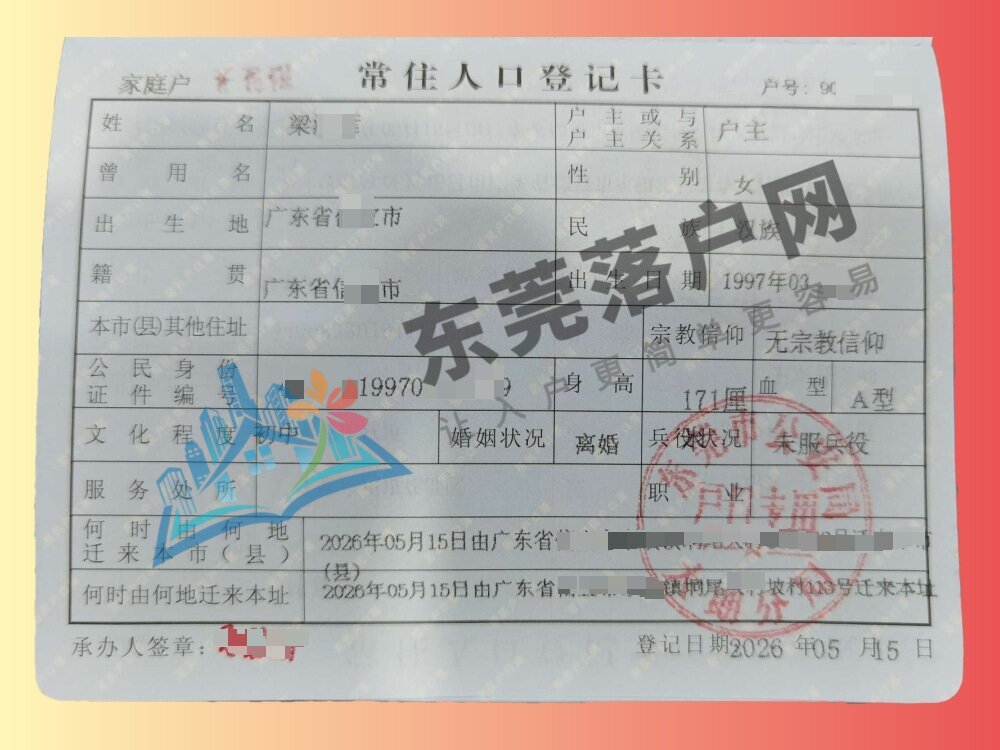 家庭户
常住人口登记卡
户号：90
姓名 梁 户主或与户主关系 户主
曾用名 性别 女
出生地 广东省信 市 民族 汉族
籍贯 广东省信 市 出生日期 1997年03
本市(县)其他住址 宗教信仰 无宗教信仰
公民身份证件编号 19970 9 身高 171厘 血型 A型
文化程度 初中 婚姻状况 离婚 兵役状况 未服兵役
服务处所 职业
何时由何地迁来本市(县) 2026年05月15日由广东省 市
(县)
何时由何地迁来本址 2026年05月15日由广东省 镇垌尾 坡村113号迁来本址
承办人签章：
登记日期：2026年05月15日
东莞落户网
让入户更简单更容易
东莞市公安局
户口专用
分局